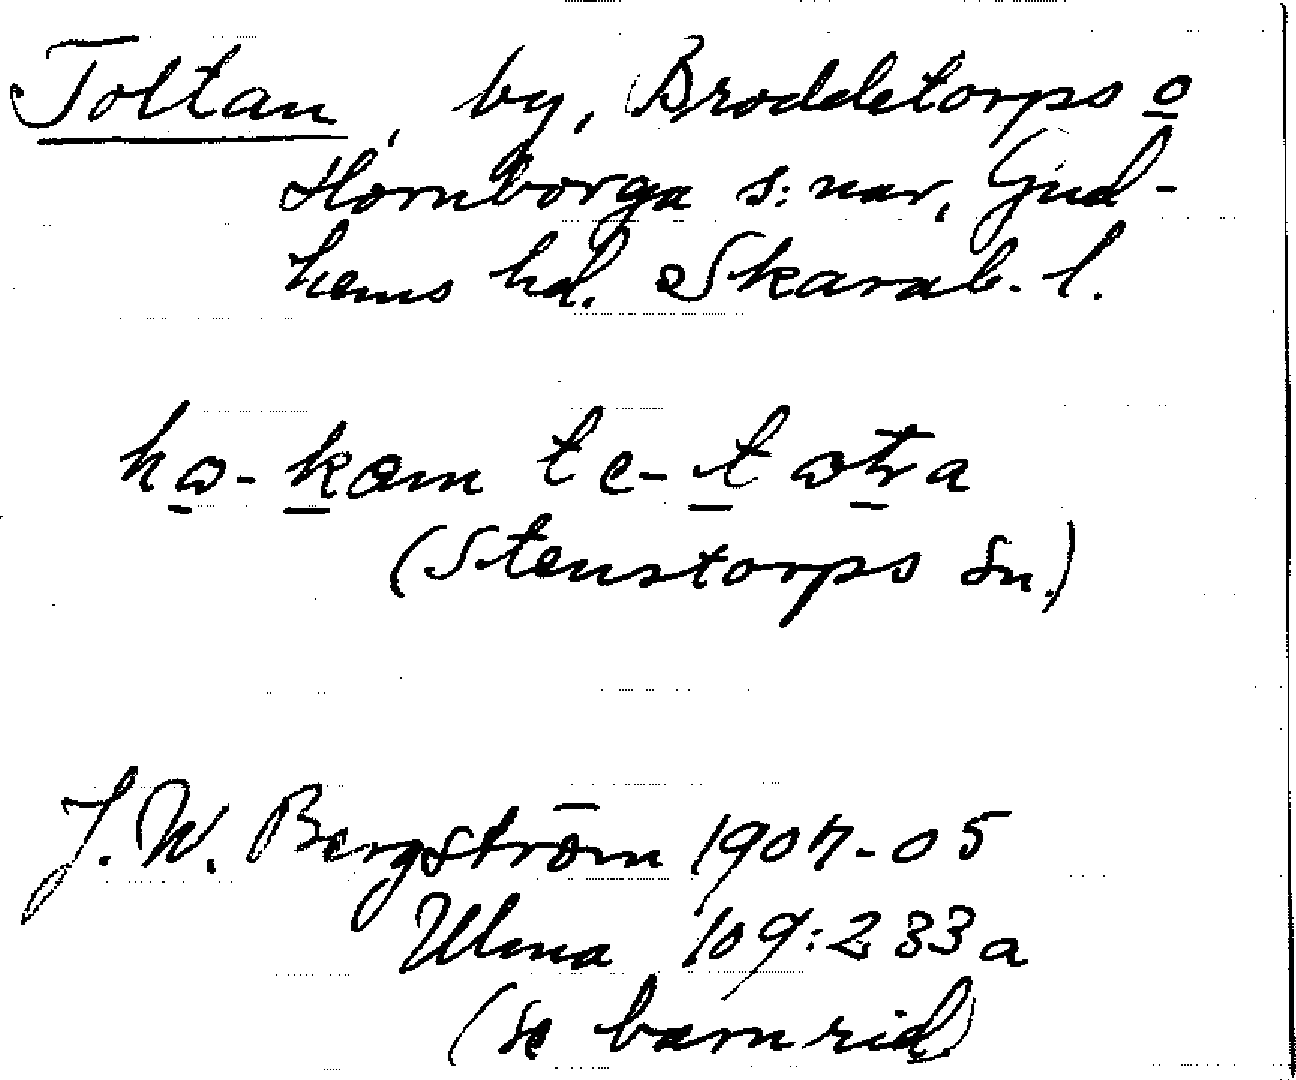 Toltan, by, Broddetorps o
Hornborga s:nar, Gud-
hems hd. Skarab. l.
ha-kam te-tatra
(Stenstorps sn.)
J. W. Bergström 1904-05
Ulma 109:233a
(se barnrid)